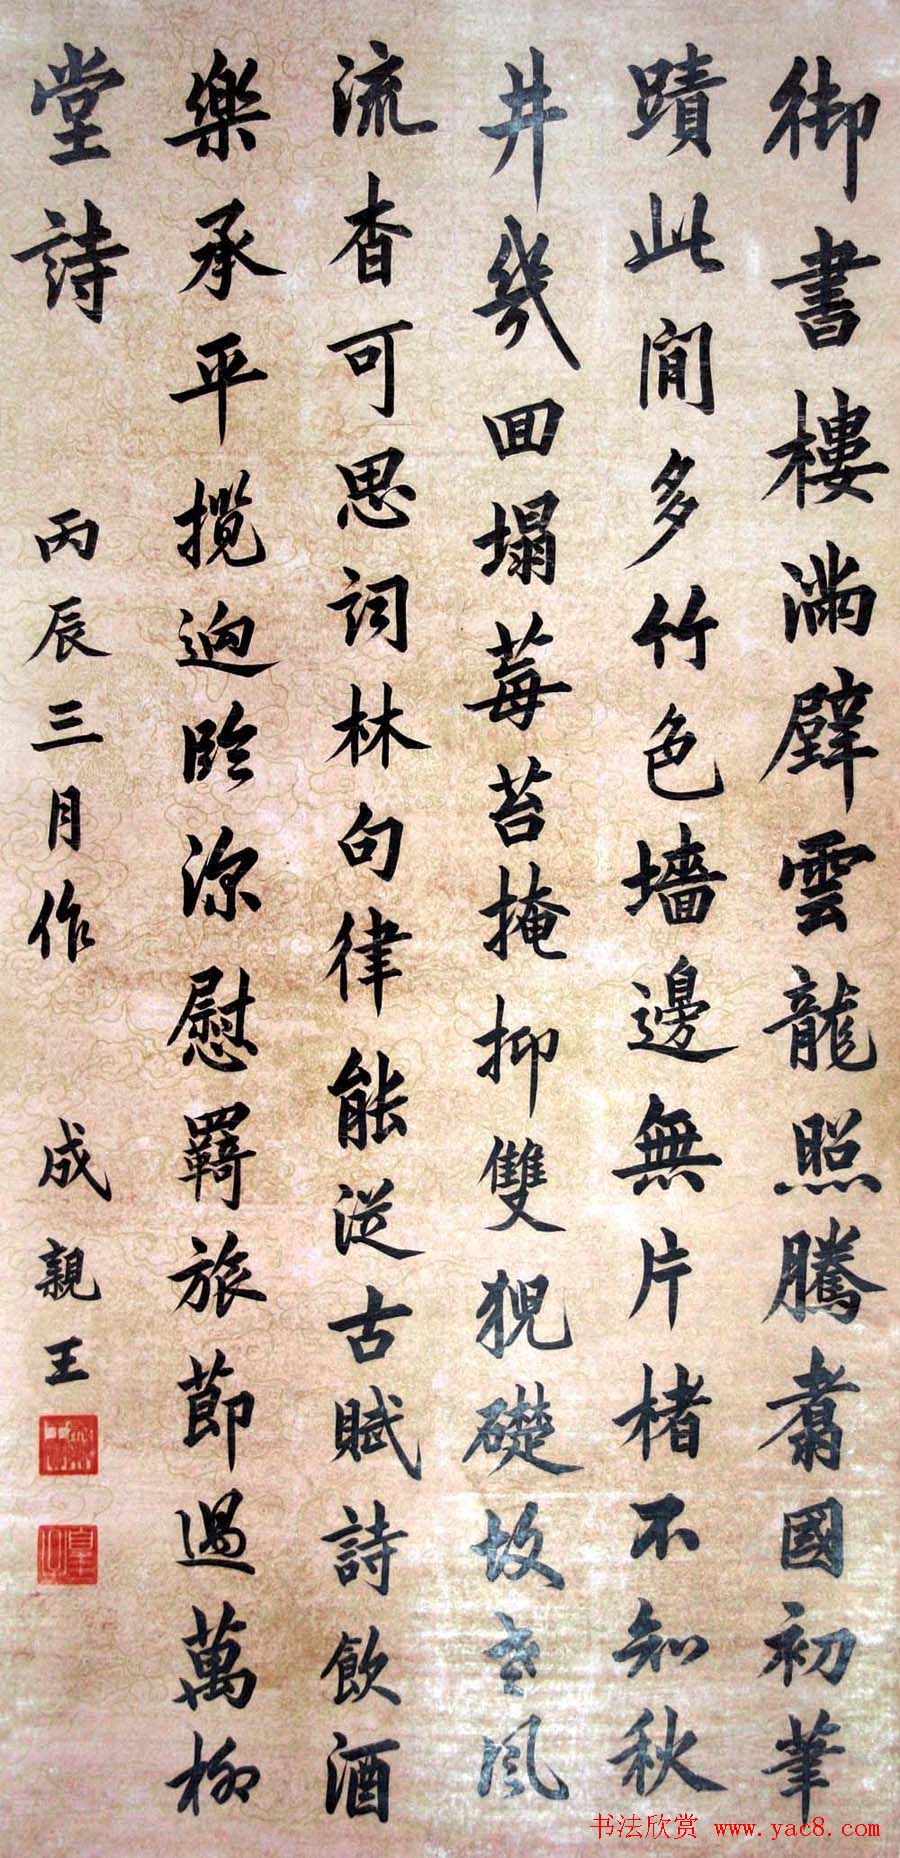 御書樓滿壁雲龍照騰翥國初筆
蹟此閒多竹色墻邊無片楮不知秋
井幾回塌莓苔掩抑雙猊礎故老風
流杳可思詞林句律能從古賦詩飲酒
樂承平攬迥臨深慰羇旅節過萬柳
堂詩
丙辰三月作
成親王
书法欣赏 www.yac8.com